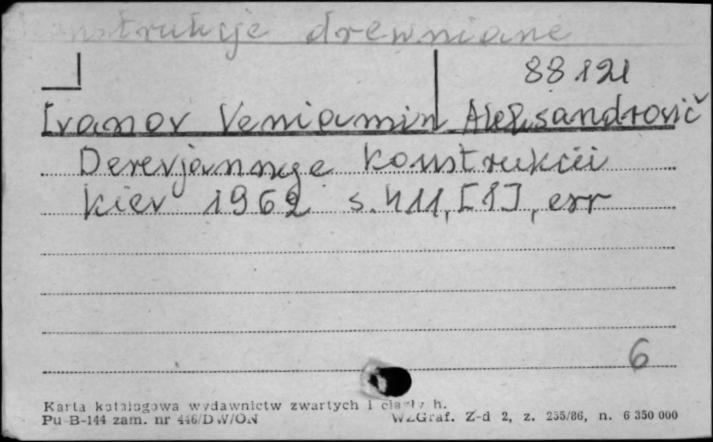 Konstrukcje drewniane
88121
Ivanov Veniamin Aleksandrovič
Derevjannye konstrukcii
Kiev 1962 s. 411, [1], err
6
Karta katalogowa wydawnictw zwartych i ciągłych.
Pu-B-144 zam. nr 446/DW/ON WZGraf. Z-d 2, z. 255/86, n. 6 350 000